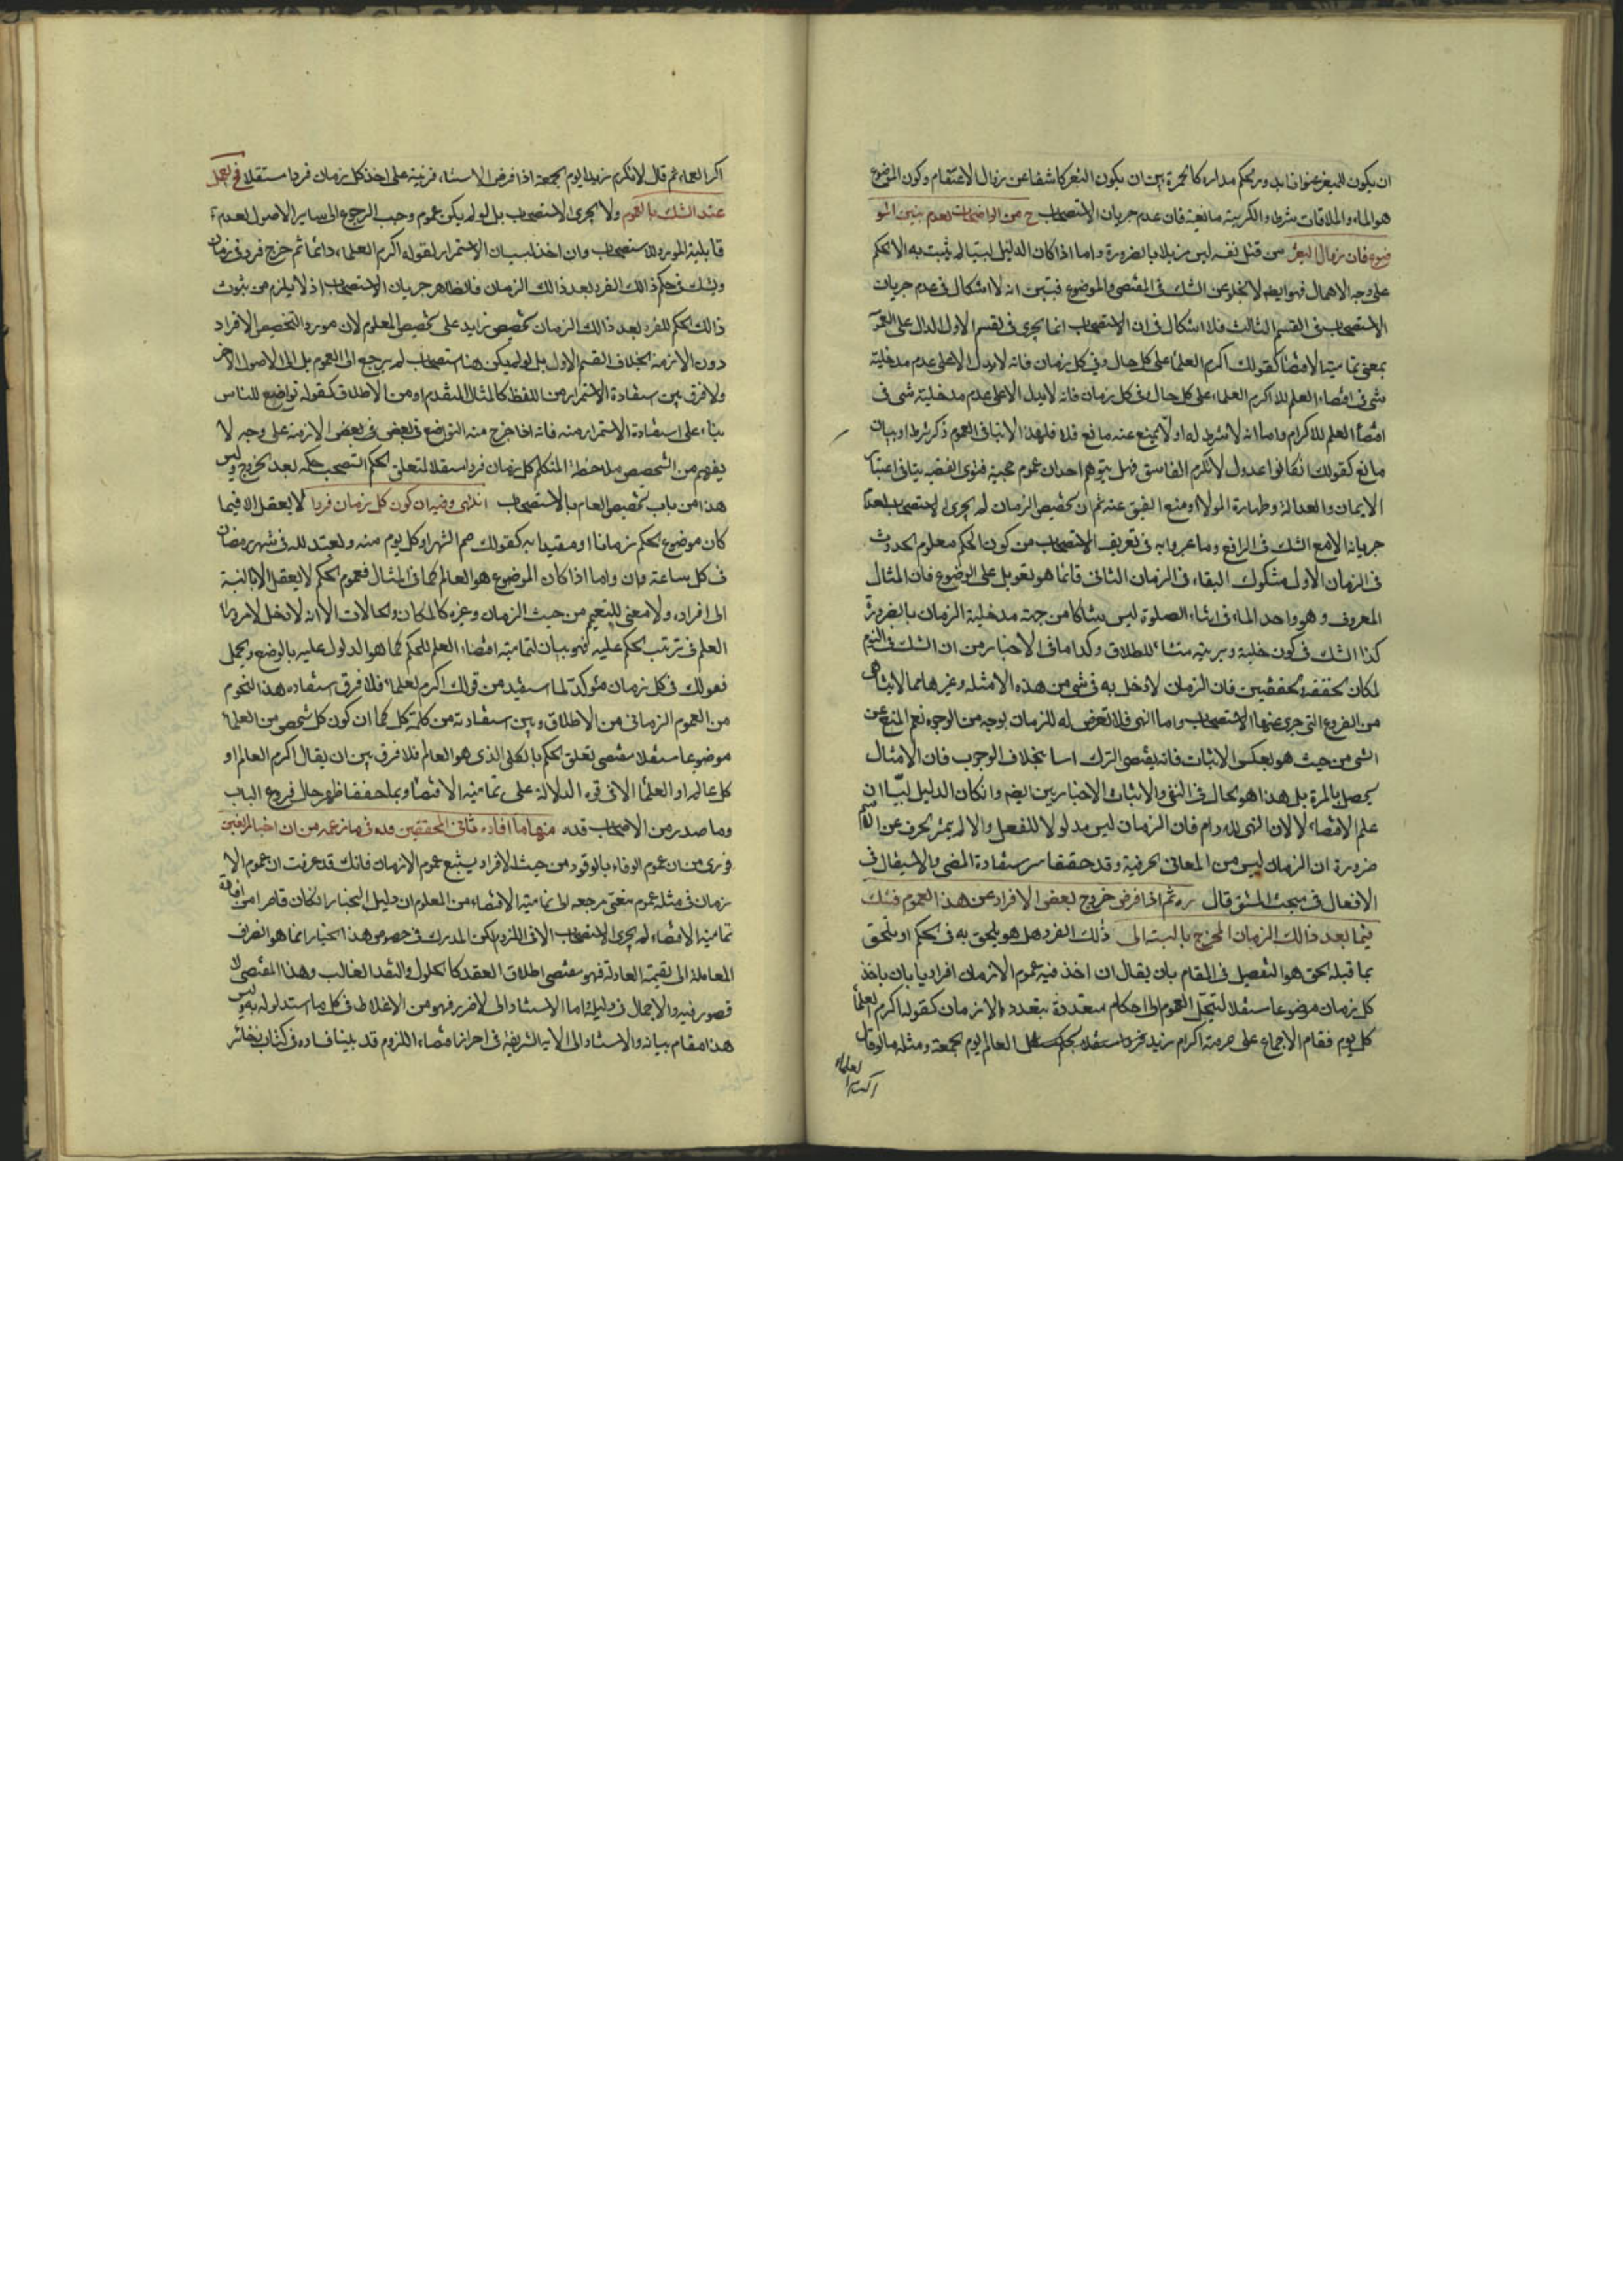 ان يكون للتغير عنوانا يدور الحكم مداره كالخمرة بين ان يكون التغير كاشفا عن زوال الاعتصام وكون الموضوع
هو الماء والملاقات شرط والكرية مانعة فان عدم جريان الاستصحاب ح من الواضحات لعدم تبين المو
ضوع فان زوال التغير من قبل نفسه ليس مزيلا بالضرورة واما اذا كان الدليل لبيا لم يثبت به الا الحكم
على وجه الاهمال فهو ايضا لا يخلو عن الشك في المقتضى والموضوع فتبين انه لا اشكال في عدم جريان
الاستصحاب في القسم الثالث فلا اشكال في ان الاستصحاب انما يجرى في القسم الاول الدال على العموم
بمعنى تمامية الاقتضاء كقولك اكرم العلماء على كل حال وفي كل زمان فانه لا يدل الا على عدم مدخلية
شئ في اقتضاء العلم للاكرام العلماء على كل حال وفي كل زمان فانه لا يدل الا على عدم مدخلية شئ في
اقتضاء العلم للاكرام واما انه لا شرط له او لا يمنع عنه مانع فلا فلهذا لا ينافى العموم ذكر شرط او بيان
مانع كقولك ان كانوا عدول لا تكرم الفاسق فهل يتوهم احد ان عموم حجية فتوى الفقيه ينافى اعتبار
الايمان والعدالة وطهارة المولد او منع الفسق عنه ثم ان تخصيص الزمان لم يجرى الاستصحاب لعدم
جريانه الا مع الشك في الرافع وما عبروا به في تعريف الاستصحاب من كون الحكم معلوم الحدوث
في الزمان الاول مشكوك البقاء في الزمان الثانى فانما هو تعويل على الوضوح فان المثال
المعروف وهو واجد الماء في اثناء الصلوة ليس شكا من جهة مدخلية الزمان بالضرورة
كذا الشك في كون خلية وبرية منشاء للطلاق وكذا ما في الاخبار من ان الشك في النوم
لمكان الخفقة والخفقتين فان الزمان لا دخل به في شئ من هذه الامثلة وغيرها مما لا يتناهى
من الفروع التى جرى عنها الاستصحاب واما النهى فلا تعرض له للزمان بوجه من الوجوه نعم المنع عن
الشئ من حيث هو بعكس الاثبات فانه يقتضى الترك اسا بخلاف الوجوب فان الامتثال
يحصل بالمرة بل هذا هو الحال في النفى والاثبات الاخباريين ايضا وان كان الدليل لبيا ان
علم الاقتضاء لا لان النهى للدوام فان الزمان ليس مدلولا للفعل والا لم يميز الحرف عن الاسم
ضرورة ان الزمان ليس من المعانى الحرفية وقد حققنا سر استفادة المضى والاستقبال في
الافعال في مبحث المشتق قال ره ثم اذا فرض خروج بعض الافراد عن هذا العموم فشك
فيما بعد ذالك الزمان المخرج بالنسبة الى ذلك الفرد هل هو يلحق به في الحكم او يلحق
بما قبله الحق هو التفصيل في المقام بان يقال ان اخذ فيه عموم الازمان افراديا بان ياخذ
كل زمان موضوعا مستقلا لتحل العموم الى احكام متعددة بتعدد الازمان كقوله اكرم العلماء
كل يوم فقام الاجماع على حرمة اكرام زيد العالم يوم الجمعة ومثله ما لو قال
اكرم العلماء
اكرم العلماء ثم قال لا تكرم زيدا يوم الجمعة اذا فرض الاستثناء قرينة على اخذ كل زمان فردا مستقلا فح يعمل
عند الشك بالعموم ولا يجرى الاستصحاب بل لو لم يكن عموم وجب الرجوع الى ساير الاصول لعدم
قابلية المورد للاستصحاب وان اخذ لبيان الاستمرار لقوله اكرم العلماء دائما ثم خرج فرد في زمان
وشك في حكم ذالك الفرد بعد ذالك الزمان فالظاهر جريان الاستصحاب اذ لا يلزم من ثبوت
ذالك الحكم للفرد بعد ذالك الزمان تخصيص زايد على تخصيص المعلوم لان مورد التخصيص الافراد
دون الازمنة بخلاف القسم الاول بل لو لم يكن هنا استصحاب لم يرجع الى العموم بل الى الاصول الاخر
ولا فرق بين استفادة الاستمرار من اللفظ كالمثال المتقدم او من الاطلاق كقوله تواضع للناس
بناء على استفادة الاستمرار منه فانه اذا خرج منه التواضع في بعض في بعض الازمنة على وجه لا
يفهم من التخصيص ملاحظة المتكلم كل زمان فردا مستقلا لتعلق الحكم استصحب حكمه بعد الخروج وليس
هذا من باب تخصيص العام بالاستصحاب انتهى وفيه ان كون كل زمان فردا لا يعقل الا فيما
كان موضوع الحكم زمانا او مقيدا به كقولك صم الشهر او كل يوم منه وتعبد لله في شهر رمضان
في كل ساعة وان واما اذا كان الموضوع هو العالم كما في المثال فعموم الحكم لا يعقل الا بالنسبة
الى افراده ولا معنى للتعميم من حيث الزمان وغيره كالمكان والحالات الا انه لا دخل لامر وراء
العلم في ترتب الحكم عليه فهو بيان لتمامية اقتضاء العلم للحكم كما هو المدلول عليه بالوضع والحمل
فقولك في كل زمان مؤكدة لما استفيد من قولك اكرم العلماء فلا فرق استفاده هذا النحو
من العموم الزمانى من الاطلاق وبين استفادته من كلمة كل كما ان كون كل شخص من العلماء
موضوعا مستقلا مقتضى تعلق الحكم بالكلى الذى هو العالم فلا فرق بين ان يقال اكرم العالم او
كل عالم او العلماء الا في قوة الدلالة على تمامية الاقتضاء وبما حققنا ظهر حال فروع الباب
وما صدر من الاصحاب قده منها ما افاده ثانى المحققين قده في ما زعمه من ان اخبار الغبن
فورى من ان عموم الوفاء بالعقود من حيث الافراد يستتبع عموم الازمان فانك قد عرفت ان عموم الا
زمان في مثله عموم معنى مرجعه الى تمامية الاقتضاء من المعلوم ان دليل الخيار ان كان قاصرا من افادة
تمامية الاقتضاء لم يجرى الاستصحاب الا في اللزوم لكن المدرك في خصوص هذا الخيار انما هو انصراف
المعاملة الى القيمة العادلة فهو مقتضى اطلاق العقد كالحلول والنقد الغالب وهذا المقتضى لا
قصور فيه ولا اجمال في دليله واما الاستناد الى لا ضرر فهو من الاغلاط في كل ما استدلوا به وليس
هذا مقام بيانه والاستناد الى الاية الشريفة في احراز اقتضاء اللزوم قد بينا فساده في كتاب ذخائر